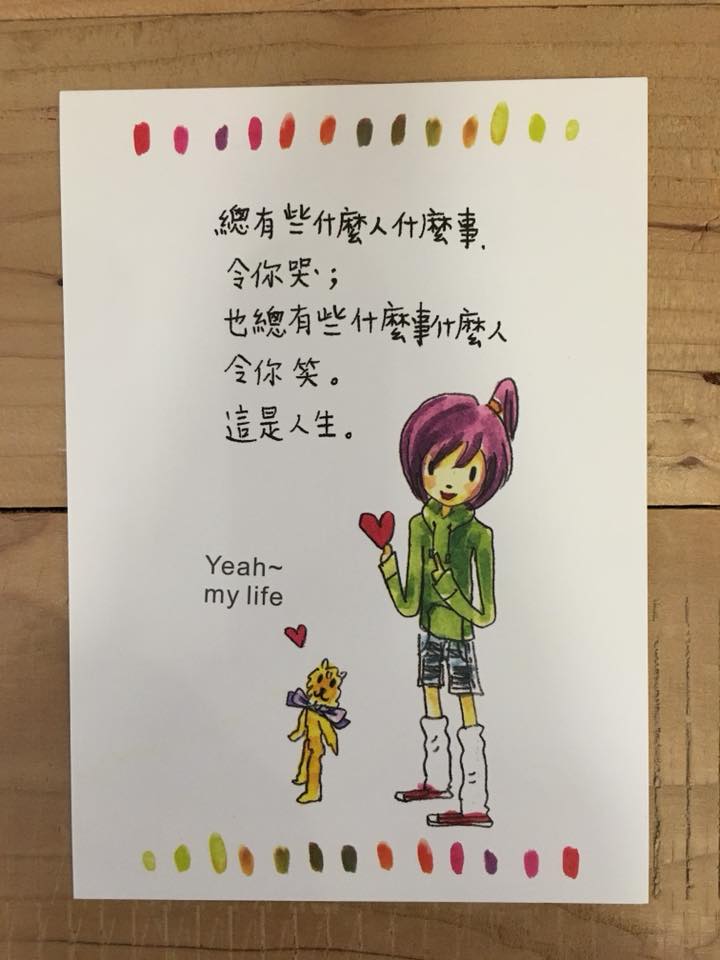 總有些什麼人什麼事,
令你哭；
也總有些什麼事什麼人
令你笑。
這是人生。
Yeah~
my life